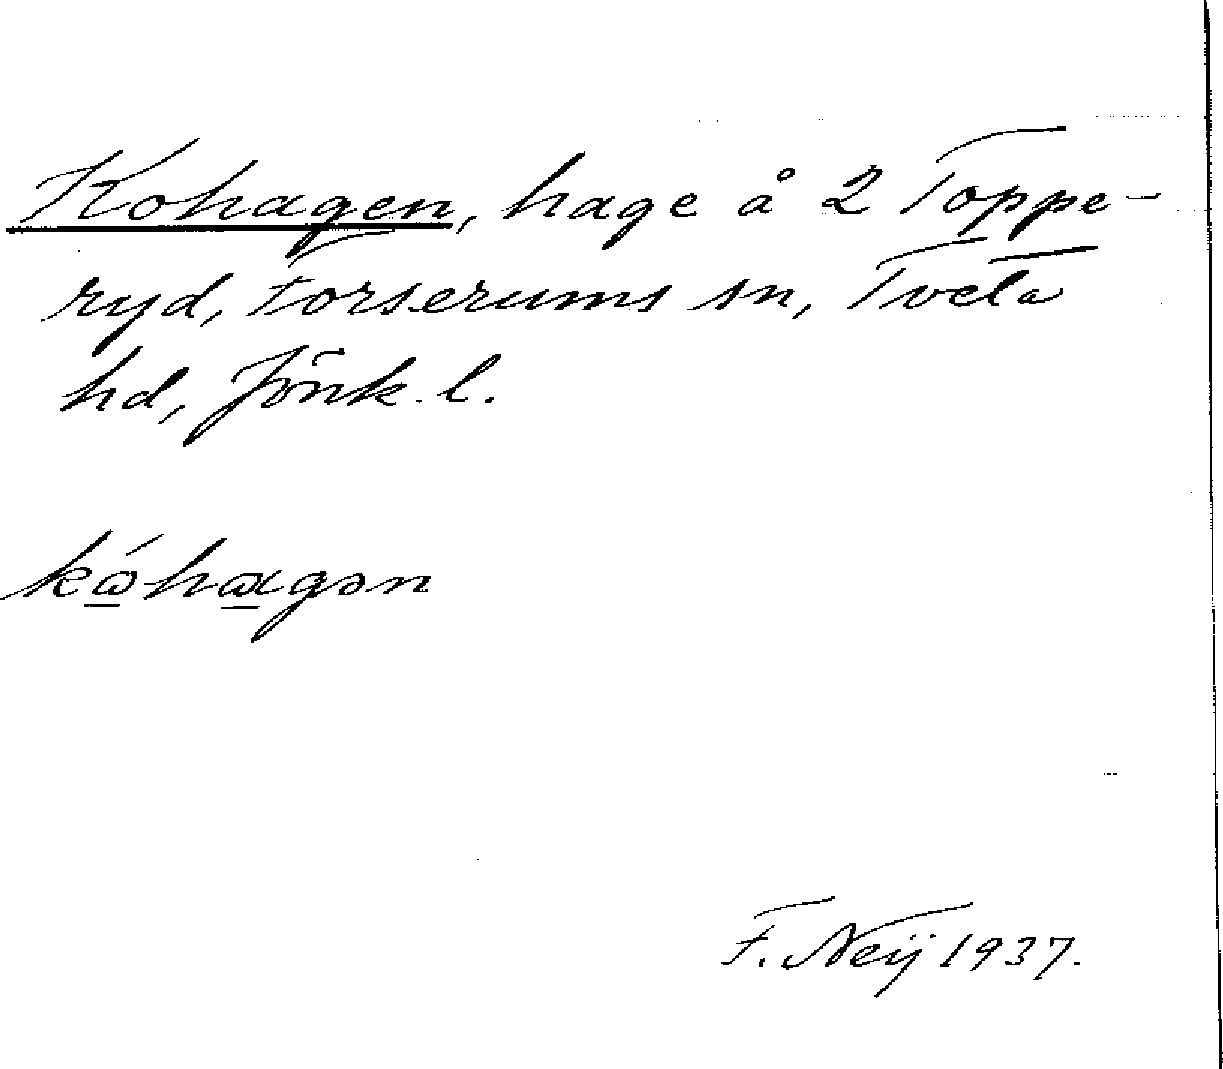 Kohagen, hage å 2 Toppe-
ryd, Forserums sn, Tveta
hd, Jönk. l.
kɷ́hαgən
F. Neij 1937.